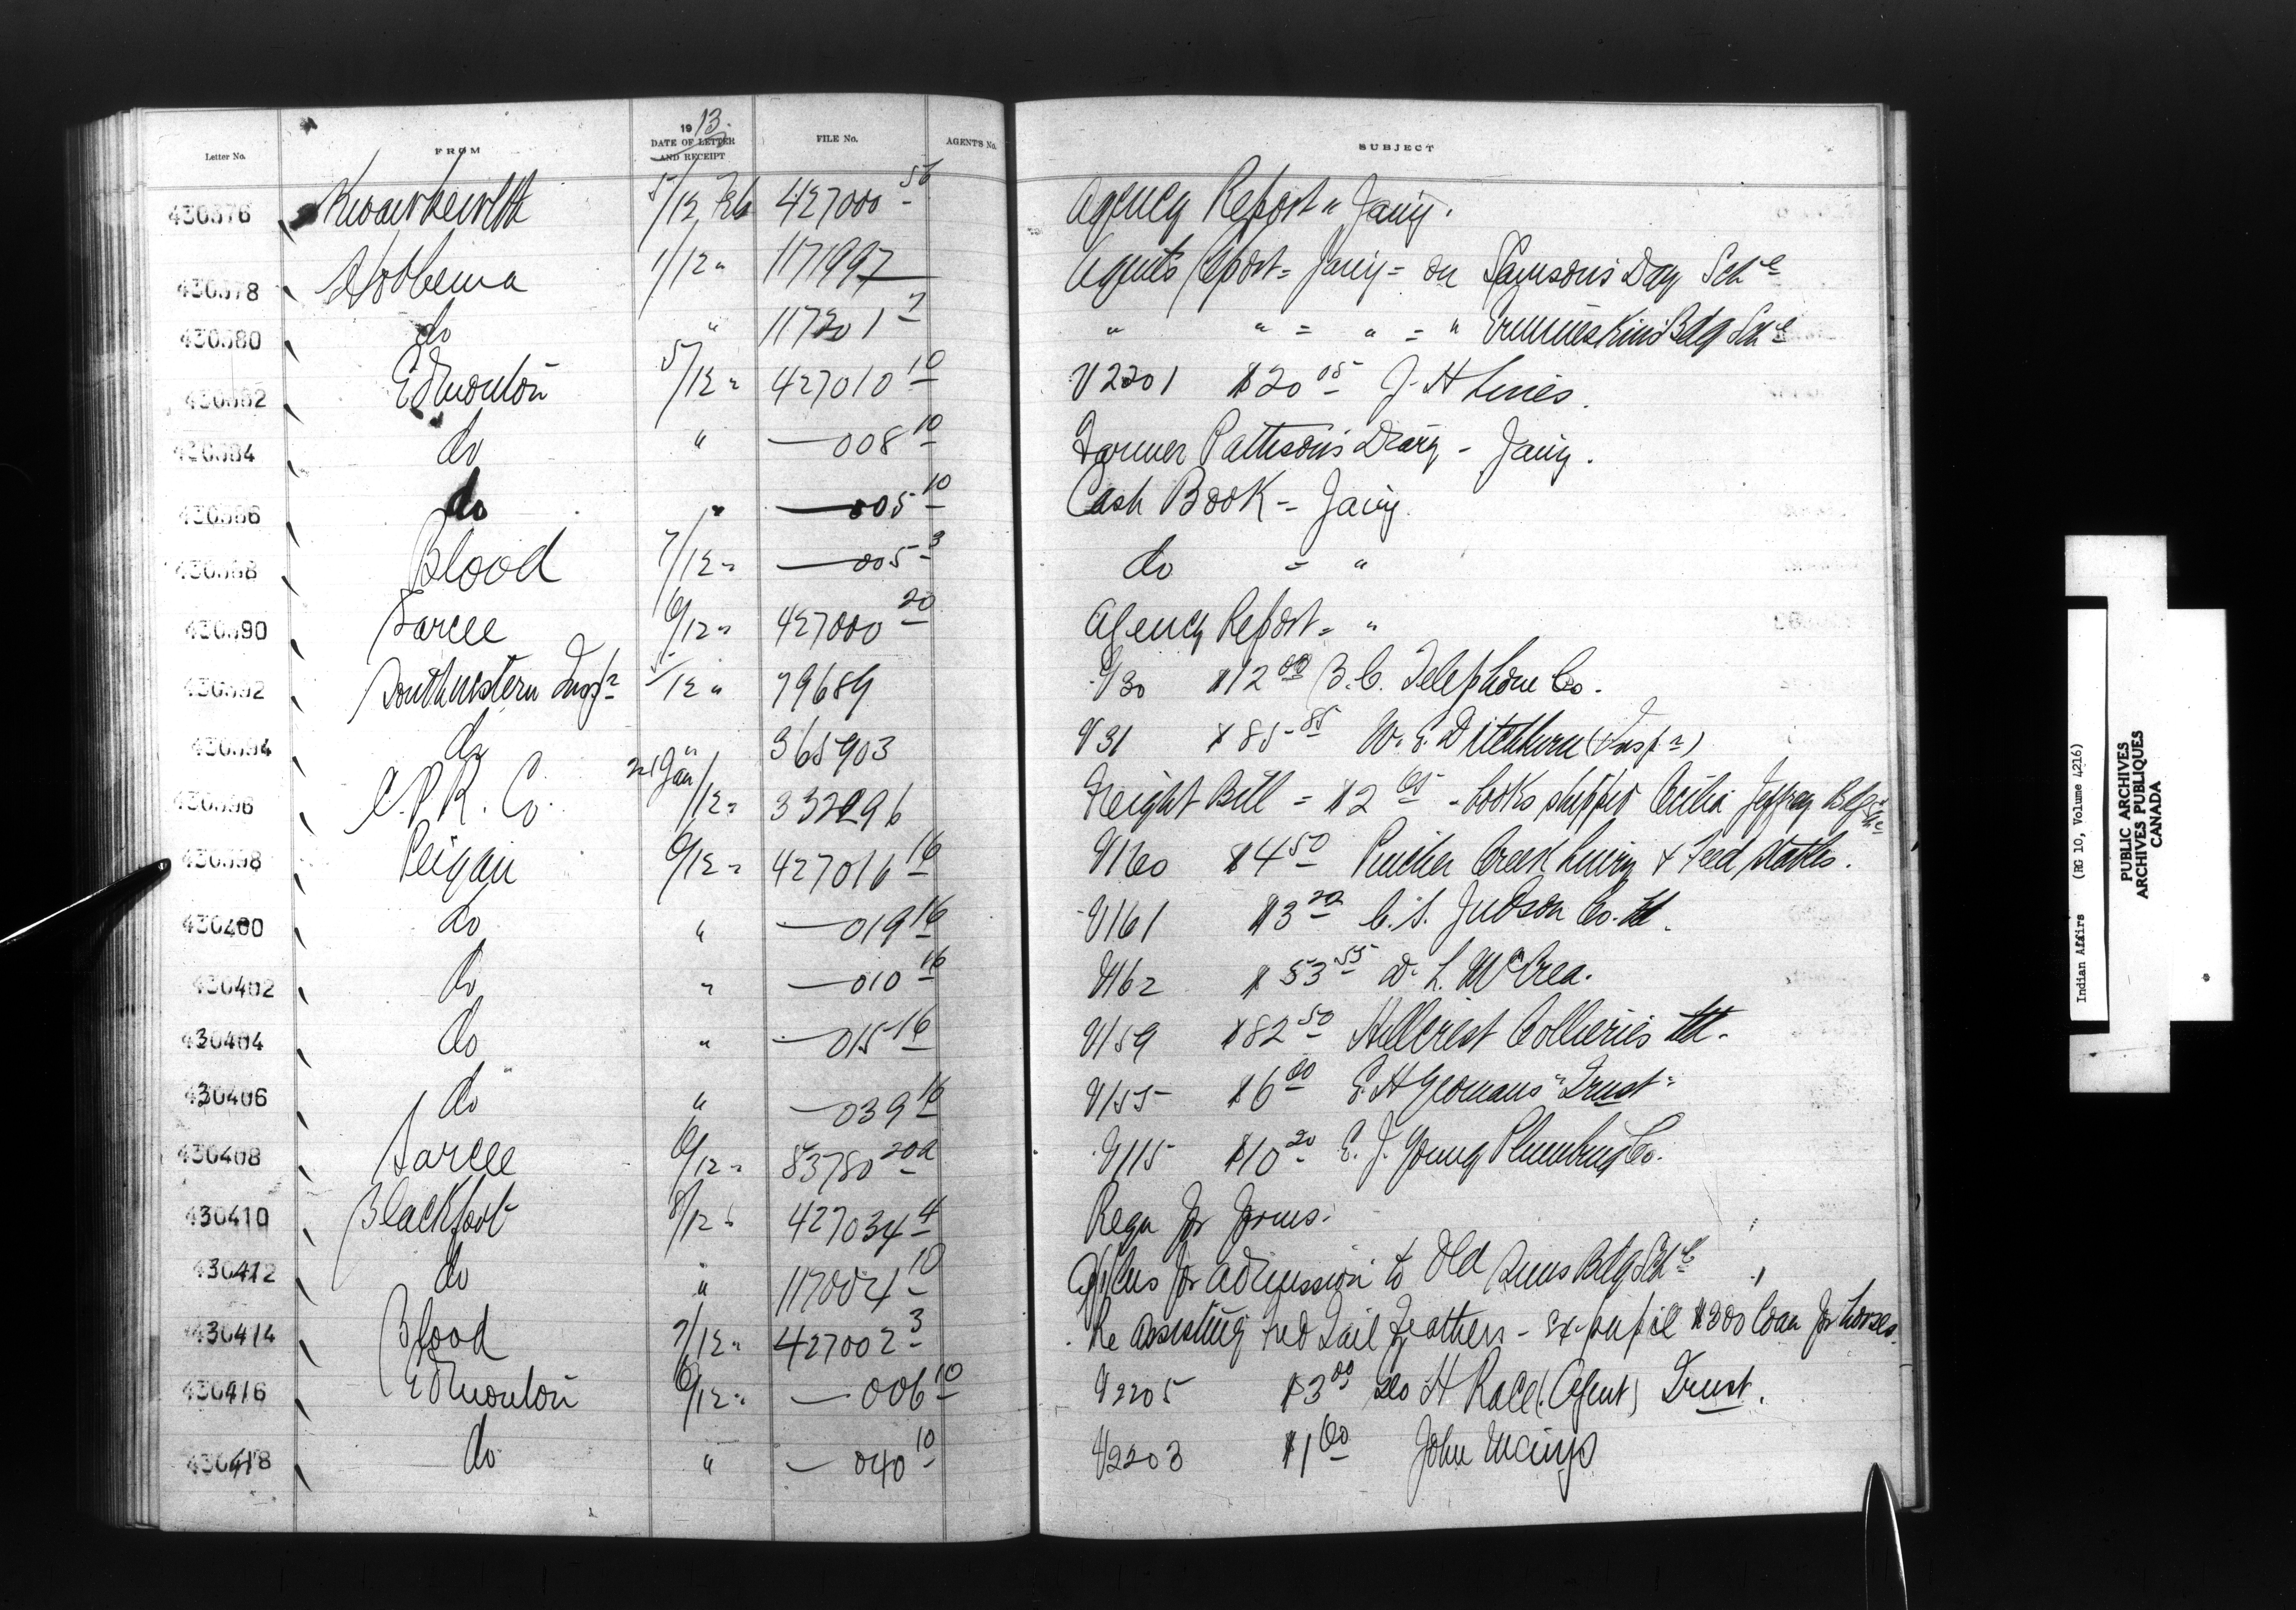 Letter No. FROM 1913. DATE OF LETTER AND RECEIPT FILE No. AGENT'S No. SUBJECT
430376 Kwawkewlth 5/12 Feb 427000-56 Agency Report " Jany.
430378 Hobbema 1/12 " 117199-7 Agents Report = Jany = on Samson's Day Schl
430380 do " 117301-7 " " = " = " Ermineskin's Bdg Schl
430382 Edmonton 5/12 " 427010-10 V2201 $20 05 J. H Lines.
430384 do " — 008-10 Farmer Pattison's Diary - Jany.
430386 do " — 005-10 Cash Book - Jany.
430388 Blood 7/12 " — 005-3 do = "
430390 Sarcee 6/12 " 427000-20 Agency Report = "
430392 Southwestern Inspr 5/12 " 79689 V30 $12 00 B.C. Telephone Co.
430394 do " 365903 V31 $85 85 W. E. Ditchburn (Inspr)
430396 C.P.R. Co. Jan/12 " 332296 Freight Bill = $2 65 - books shipped Cecilia Jeffrey Bdg Schl
430398 Peigan 6/12 " 427016-16 V160 $4 50 Pincher Creek Livery & Feed Stables.
430400 do " — 019-16 V161 $3 20 C. S. Judson Co. Ltd.
430402 do " — 010-16 V162 $53 55 D. L. McCrea.
430404 do " — 015-16 V159 $82 50 Hillcrest Collieries Ltd.
430406 do " — 039-16 V155 $6 00 E. H Yeomans "Trust"
430408 Sarcee 6/12 " 83780-20a V115 $10 20 E. J. Young Plumbing Co.
430410 Blackfoot 8/12 " 427034-4 Reqn for forms.
430412 do " 117004-10 Applns for admission to Old Suns Bdg Schl
430414 Blood 7/12 " 427002-3 Re assisting Red Tail Feathers - ex-pupil $300 loan for horses.
430416 Edmonton 6/12 " — 006-10 V2205 $3 00 Geo H Race (Agent) Trust.
430418 do " — 040-10 V2203 $1 60 John
Indian Affairs (RG 10, Volume 4216)
PUBLIC ARCHIVES
ARCHIVES PUBLIQUES
CANADA